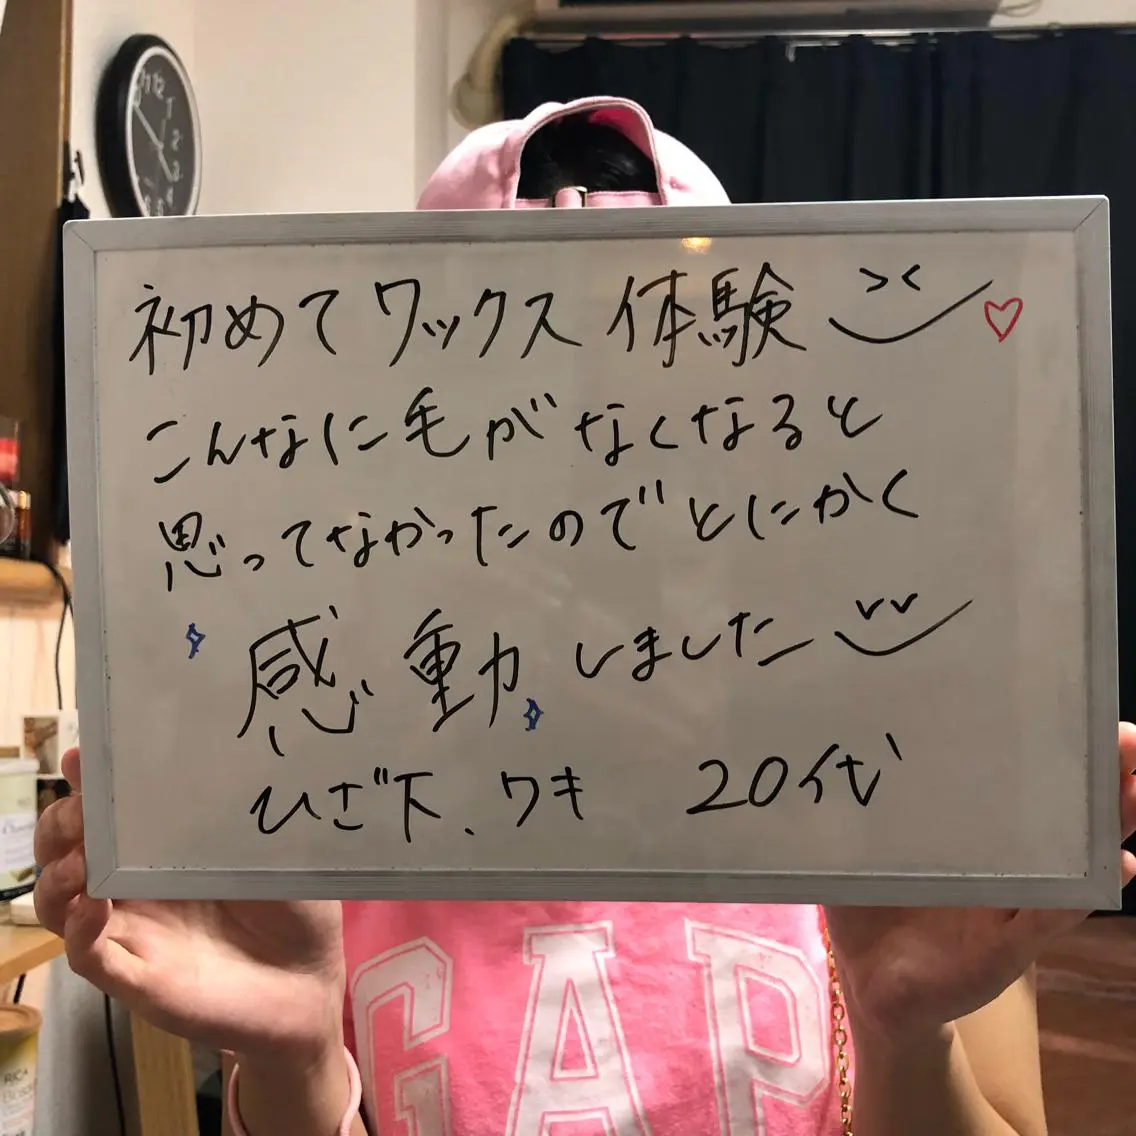 初めてワックス体験
こんなに毛がなくなると
思ってなかったのでとにかく
感動しました
ひざ下、ワキ 20代
GAP
RICA